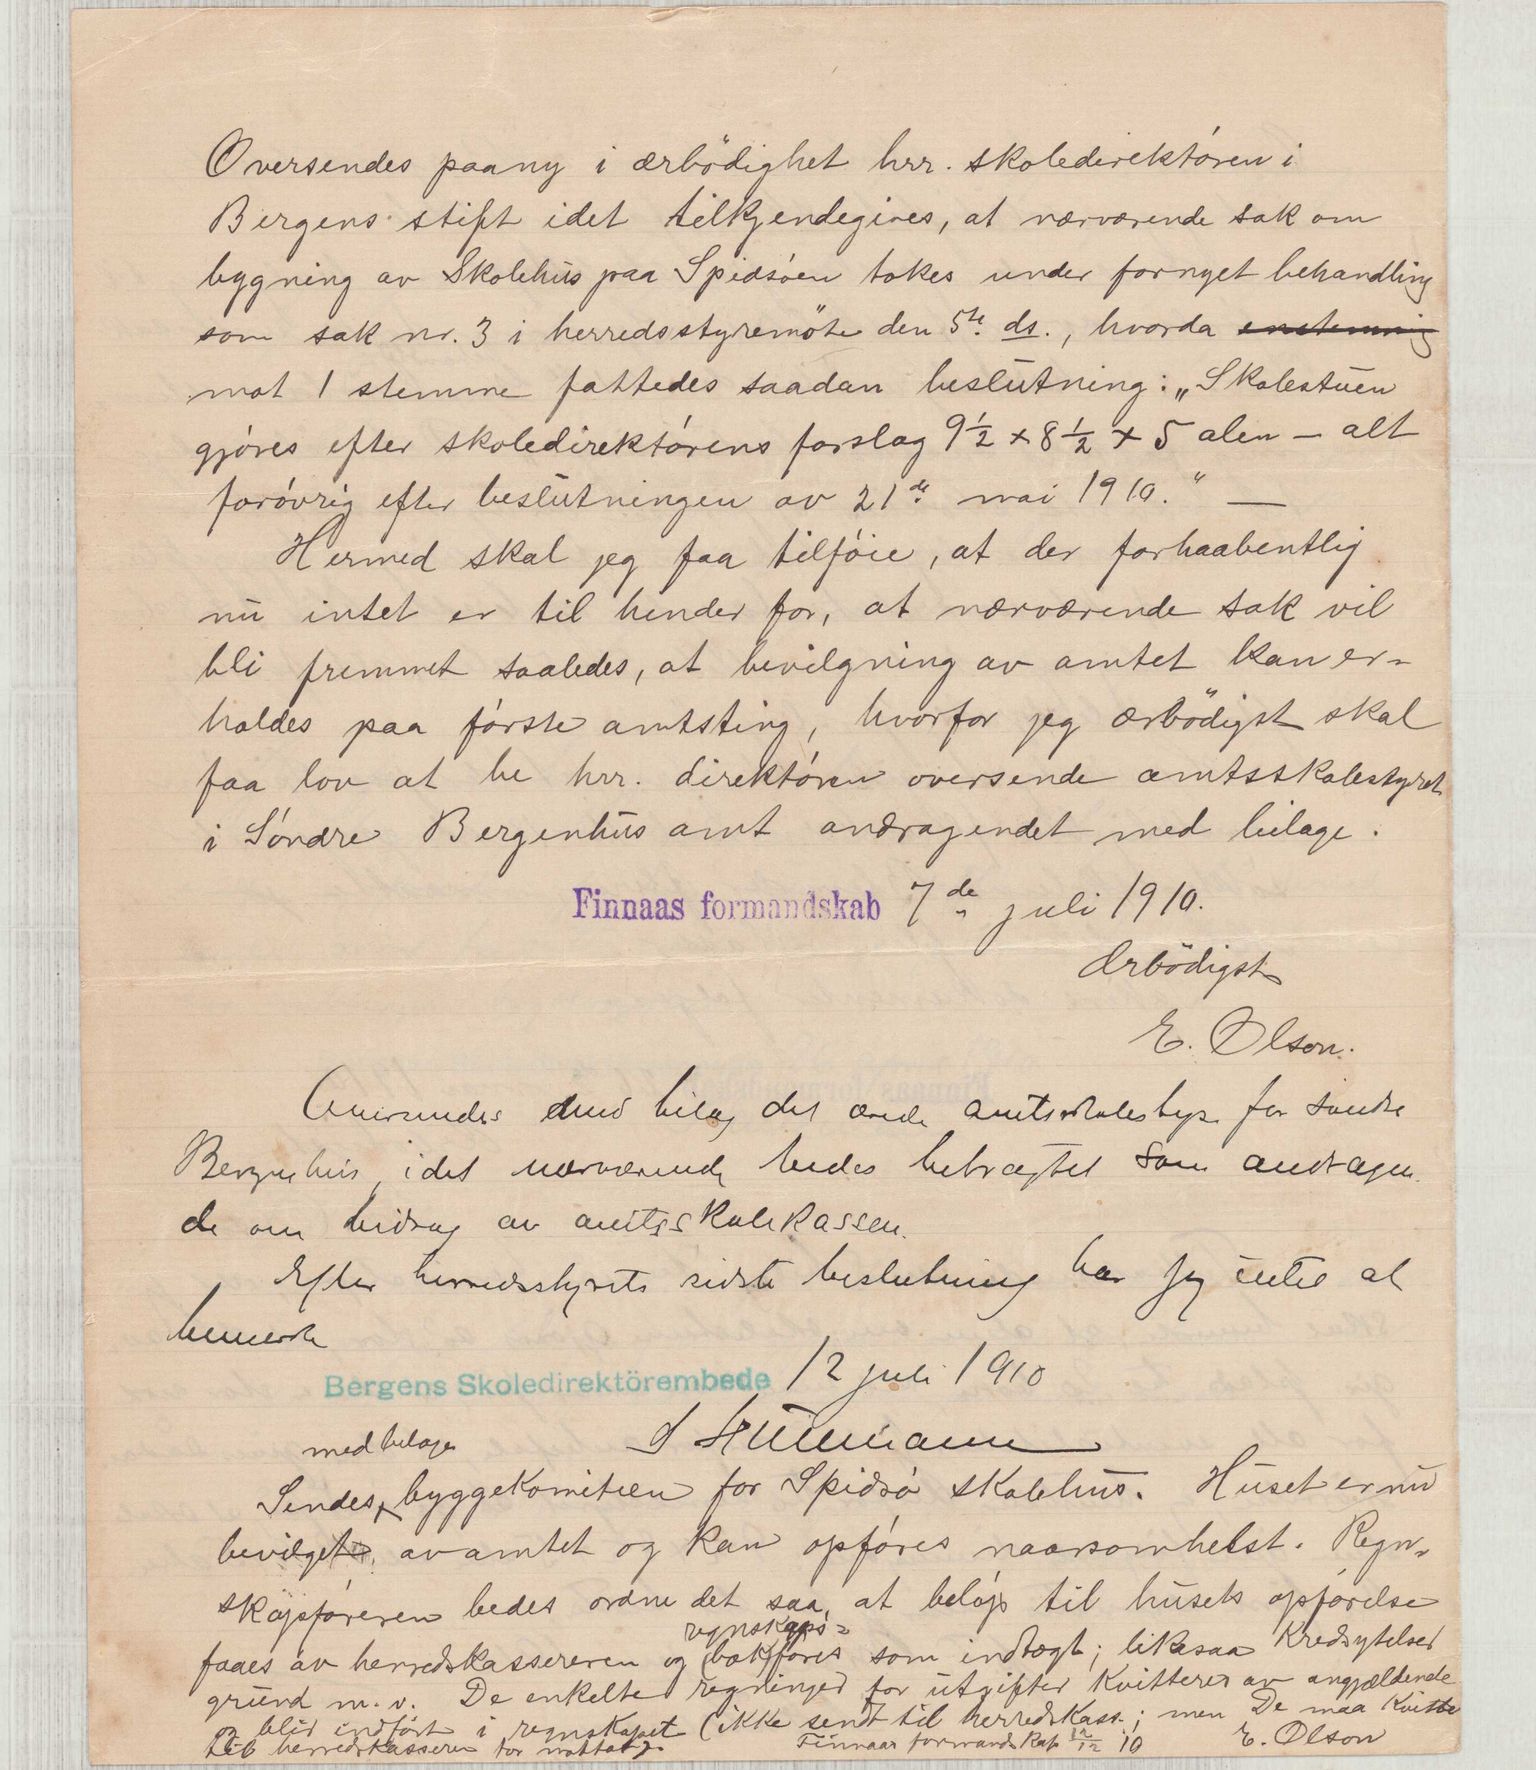 Oversendes paany i ærbödighet hrr. skoledirektören i
Bergens stift idet tilkjendegives, at nærværende sak om
bygning av Skolehus paa Spidsöen tokes under fornyet behandling
som sak nr. 3 i herredsstyremöte den 5te ds., hvorda enstemmig
mot 1 stemme fattedes saadan beslutning: „Skolestuen
gjöres efter skoledirektörens forslag 9½ x 8½ x 5 alen – alt
forövrig efter beslutningen av 21de mai 1910.“ —
Hermed skal jeg faa tilföie, at der forhaabentlig
nu intet er til hinder for, at nærværende sak vil
bli fremmet saaledes, at bevilgning av amtet kan er-
holdes paa förste amtsting, hvorfor jeg ærbödigst skal
faa lov at be hrr. direktören oversende amtsskolestyret
i Söndre Bergenhus amt andragendet med bilage.
Finnaas formandskab 7de juli 1910.
Ærbödigst
E. Olson.
Oversendes med bilag det ærede amtsskolestyre for söndre
Bergenhus, idet nærværende bedes betragtet som andragen-
de om bidrag av amtsskolekassen.
Efter herredsstyrets sidste beslutning har jeg intet at
bemerke
Bergens Skoledirektörembede 12 juli 1910
med bilage
Sendes byggekomiteen for Spidsö skolehus. Huset er nu
bevilget av amtet og kan opföres naarsomhelst. Regn-
skapsföreren bedes ordne det saa, at belöp til husets opförelse
regnskaps=
faaes av herredskassereren og (bok)föres som indtægt; likesaa Kredsytelser
grund m. v. De enkelte regninger for utgifter kvitteres av angjældende
og blir indfört i regnskapet (ikke sendt til herredskass.; men De maa kvittere
til herredskasseren for mottat). Finnaas formandskap 12/12 10 E. Olson